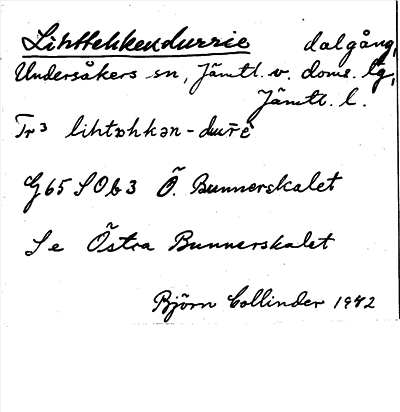 Lihttehkendurrie dalgång,
Undersåkers sn, Jämtl. v. doms. lg,
Jämtl. l.
Tr³ lihtɒhkən-dur̄ē
G65 S Ob3 Ö. Bunnerskalet
Se Östra Bunnerskalet
Björn Collinder 1942